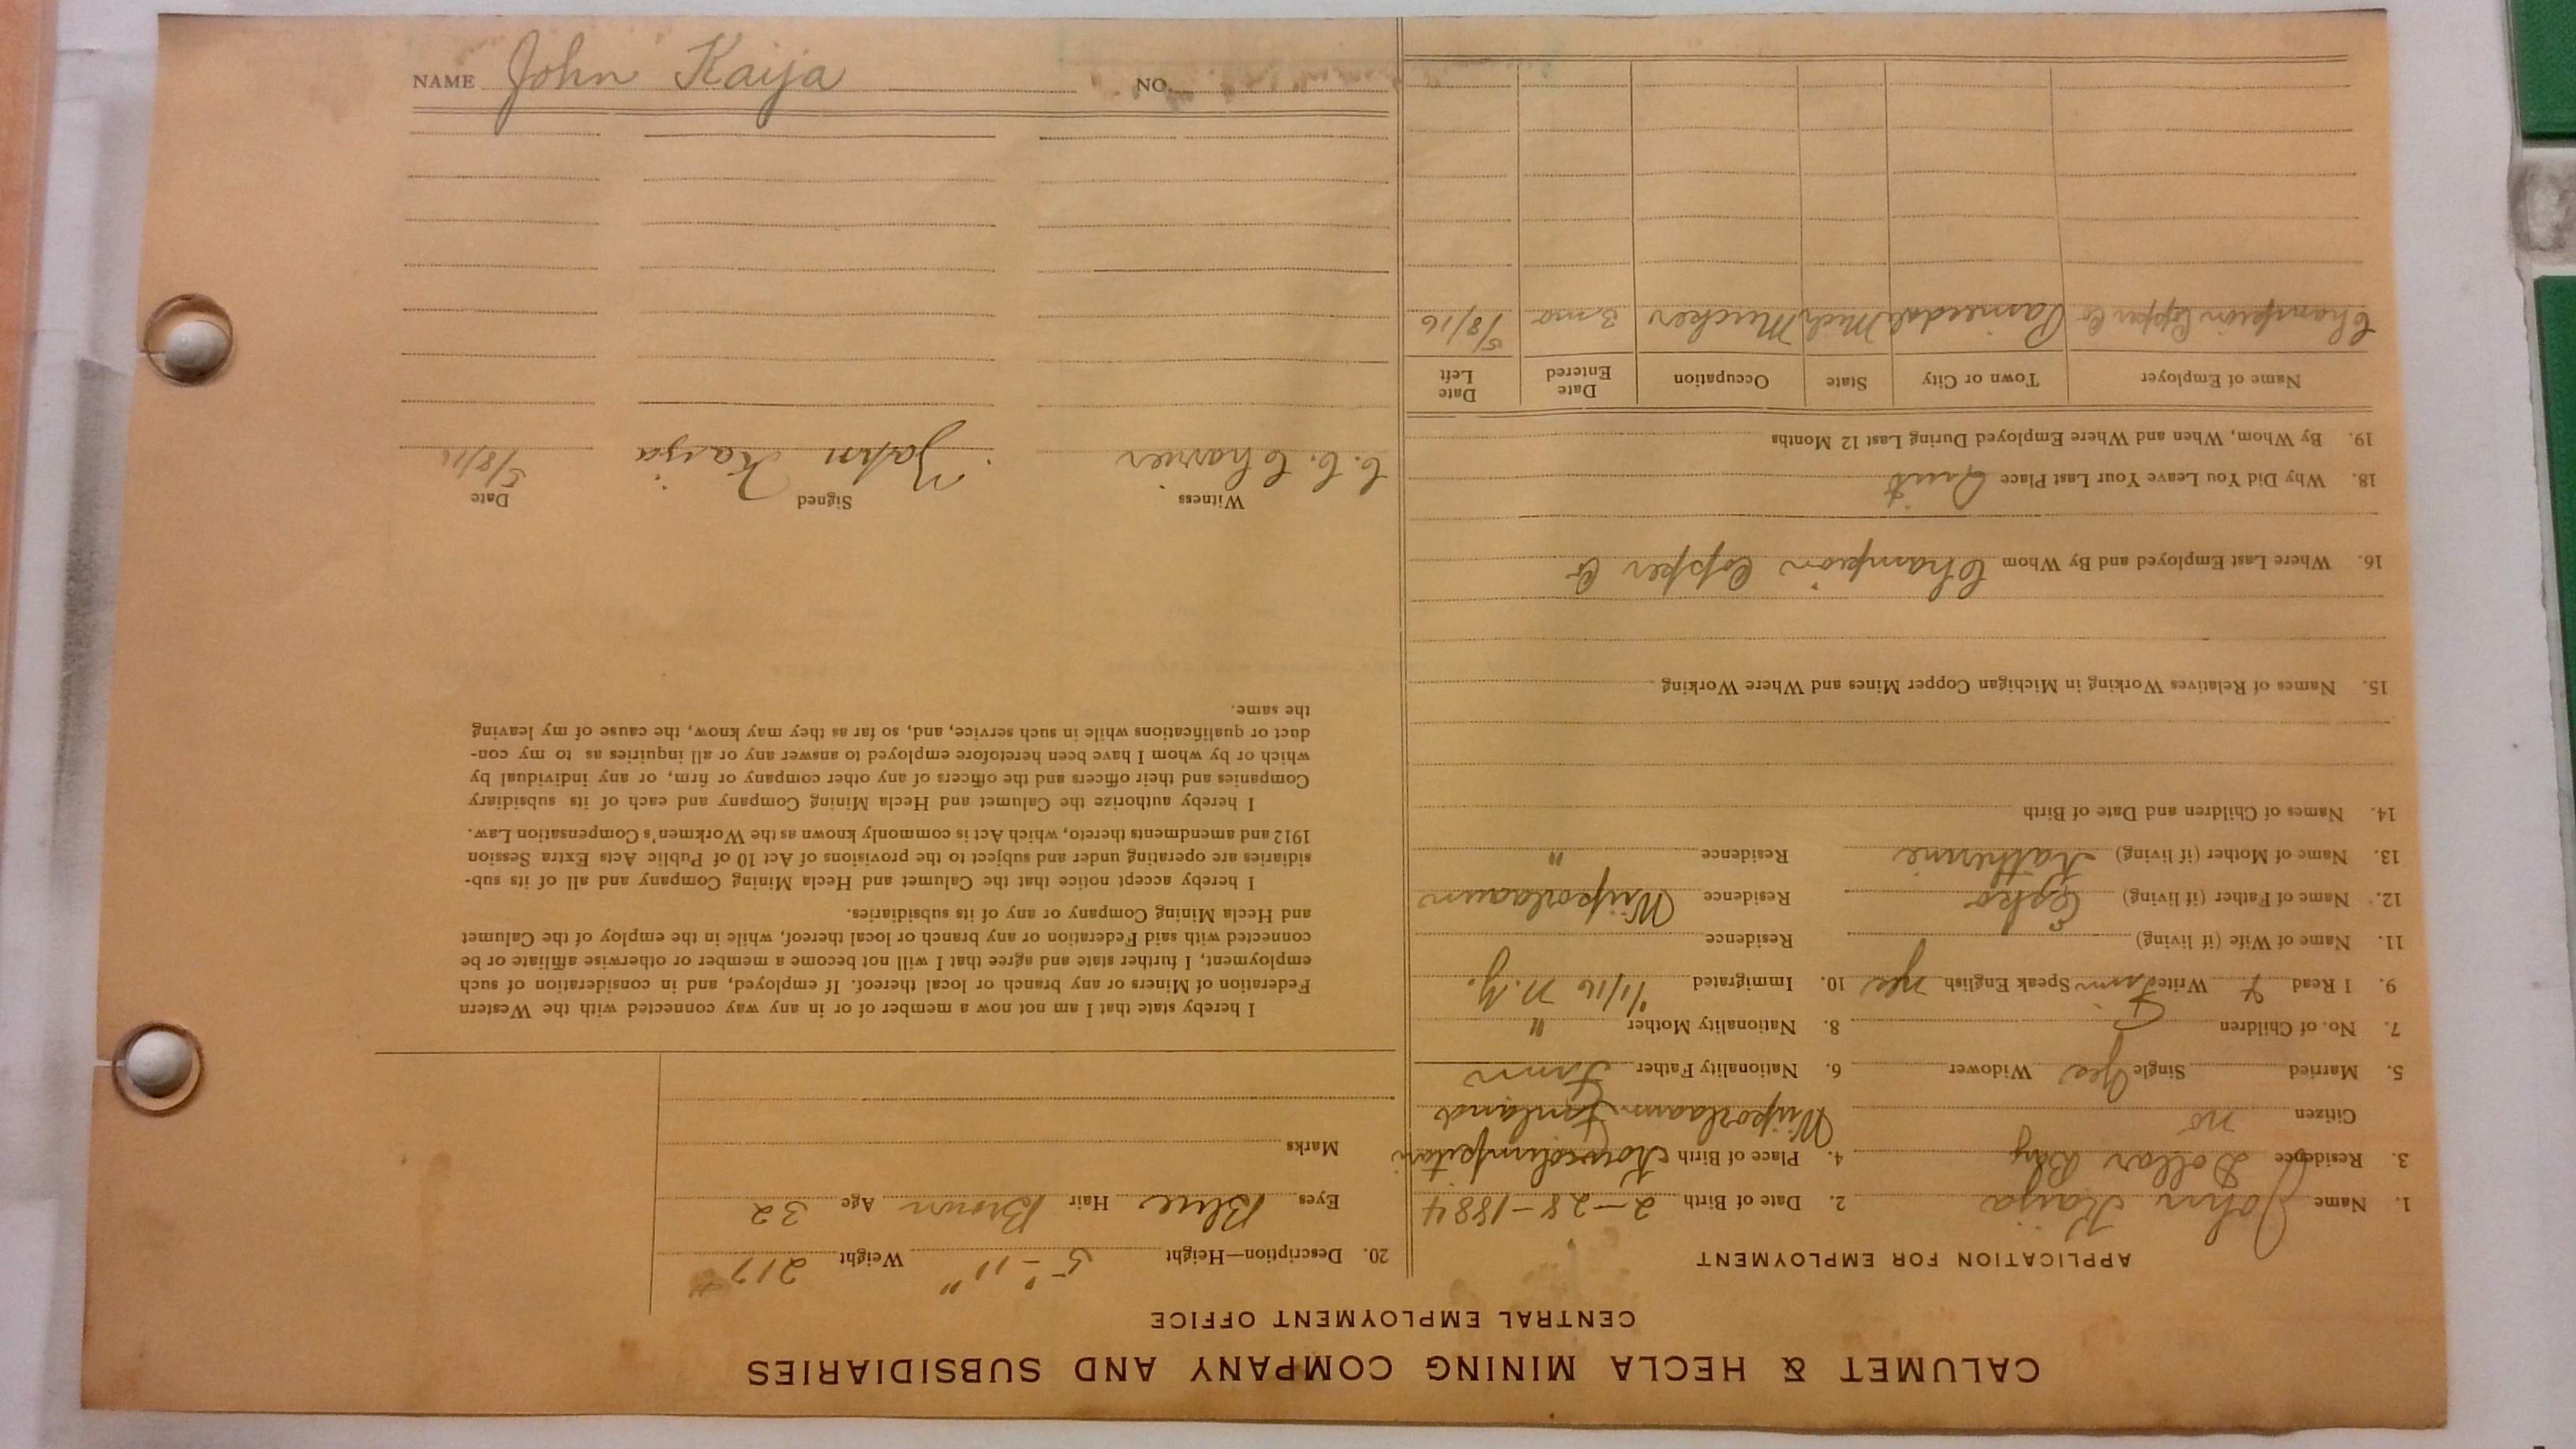 CALUMET & HECLA MINING COMPANY AND SUBSIDIARIES
CENTRAL EMPLOYMENT OFFICE
APPLICATION FOR EMPLOYMENT
1. Name John Kaija 2. Date of Birth 2-28-1884
3. Residence Dollar Bay 4. Place of Birth
Citizen no Finland
5. Married Single Yes Widower 6. Nationality Father Finn
7. No. of Children 8. Nationality Mother "
9. I Read F Write Finn Speak English yes 10. Immigrated 1/1/16 N.Y.
11. Name of Wife (if living) Residence
12. Name of Father (if living) Residence
13. Name of Mother (if living) Katherine Residence "
14. Names of Children and Date of Birth
15. Names of Relatives Working in Michigan Copper Mines and Where Working
16. Where Last Employed and By Whom Champion Copper Co
18. Why Did You Leave Your Last Place Quit
19. By Whom, When and Where Employed During Last 12 Months
Name of Employer Town or City State Occupation Date Entered Date Left
Champion Copper Co Mich Mucker 3 mo 5/8/16
20. Description—Height 5'-11" Weight 217
Eyes Blue Hair Brown Age 32
Marks
I hereby state that I am not now a member of or in any way connected with the Western
Federation of Miners or any branch or local thereof. If employed, and in consideration of such
employment, I further state and agree that I will not become a member or otherwise affiliate or be
connected with said Federation or any branch or local thereof, while in the employ of the Calumet
and Hecla Mining Company or any of its subsidiaries.
I hereby accept notice that the Calumet and Hecla Mining Company and all of its sub-
sidiaries are operating under and subject to the provisions of Act 10 of Public Acts Extra Session
1912 and amendments thereto, which Act is commonly known as the Workmen's Compensation Law.
I hereby authorize the Calumet and Hecla Mining Company and each of its subsidiary
Companies and their officers and the officers of any other company or firm, or any individual by
which or by whom I have been heretofore employed to answer any or all inquiries as to my con-
duct or qualifications while in such service, and, so far as they may know, the cause of my leaving
the same.
Witness Signed Date
John Kaija 5/8/16
NAME John Kaija NO.